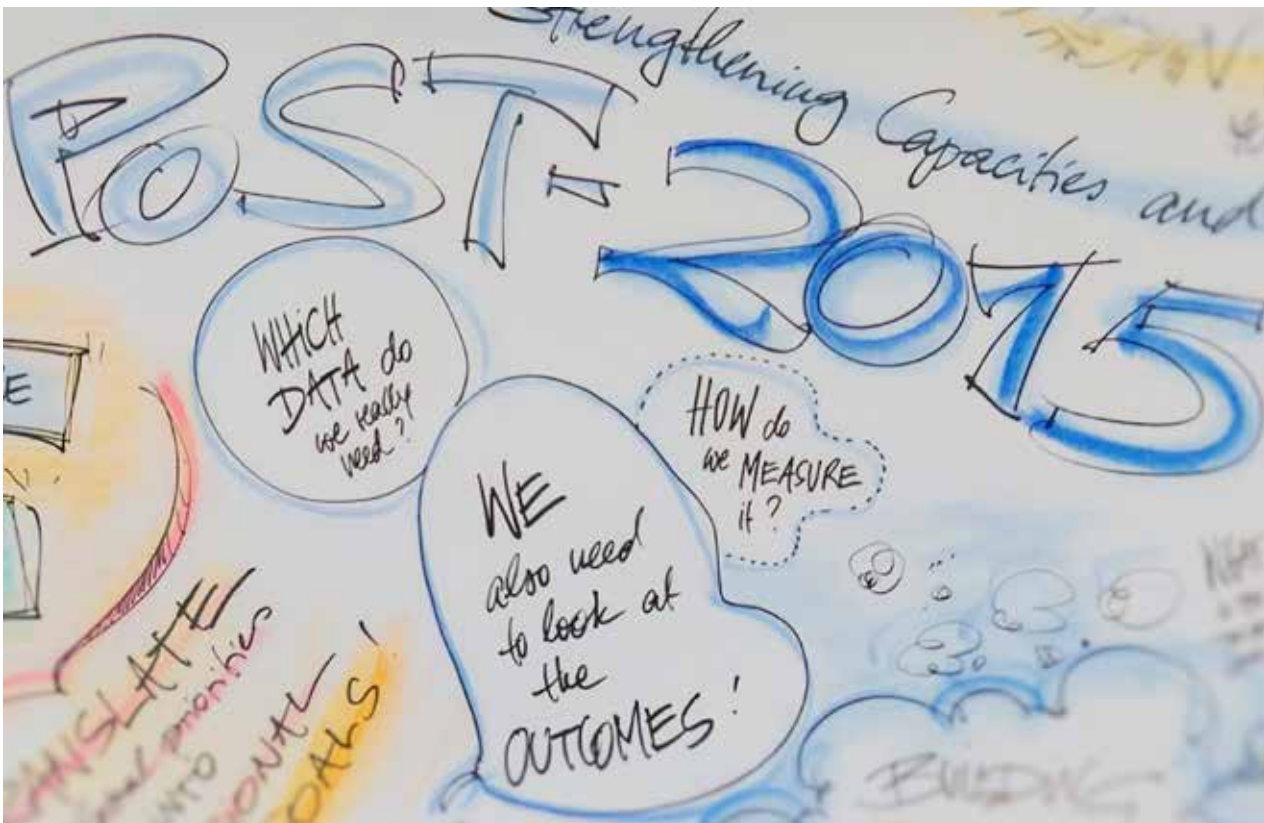 Strengthening Capacities and
POST-2015
WHICH
DATA do
we really
need?
HOW do
we MEASURE
it?
WE
also need
to look at
the
OUTCOMES!
priorities
INTO
BUILDING